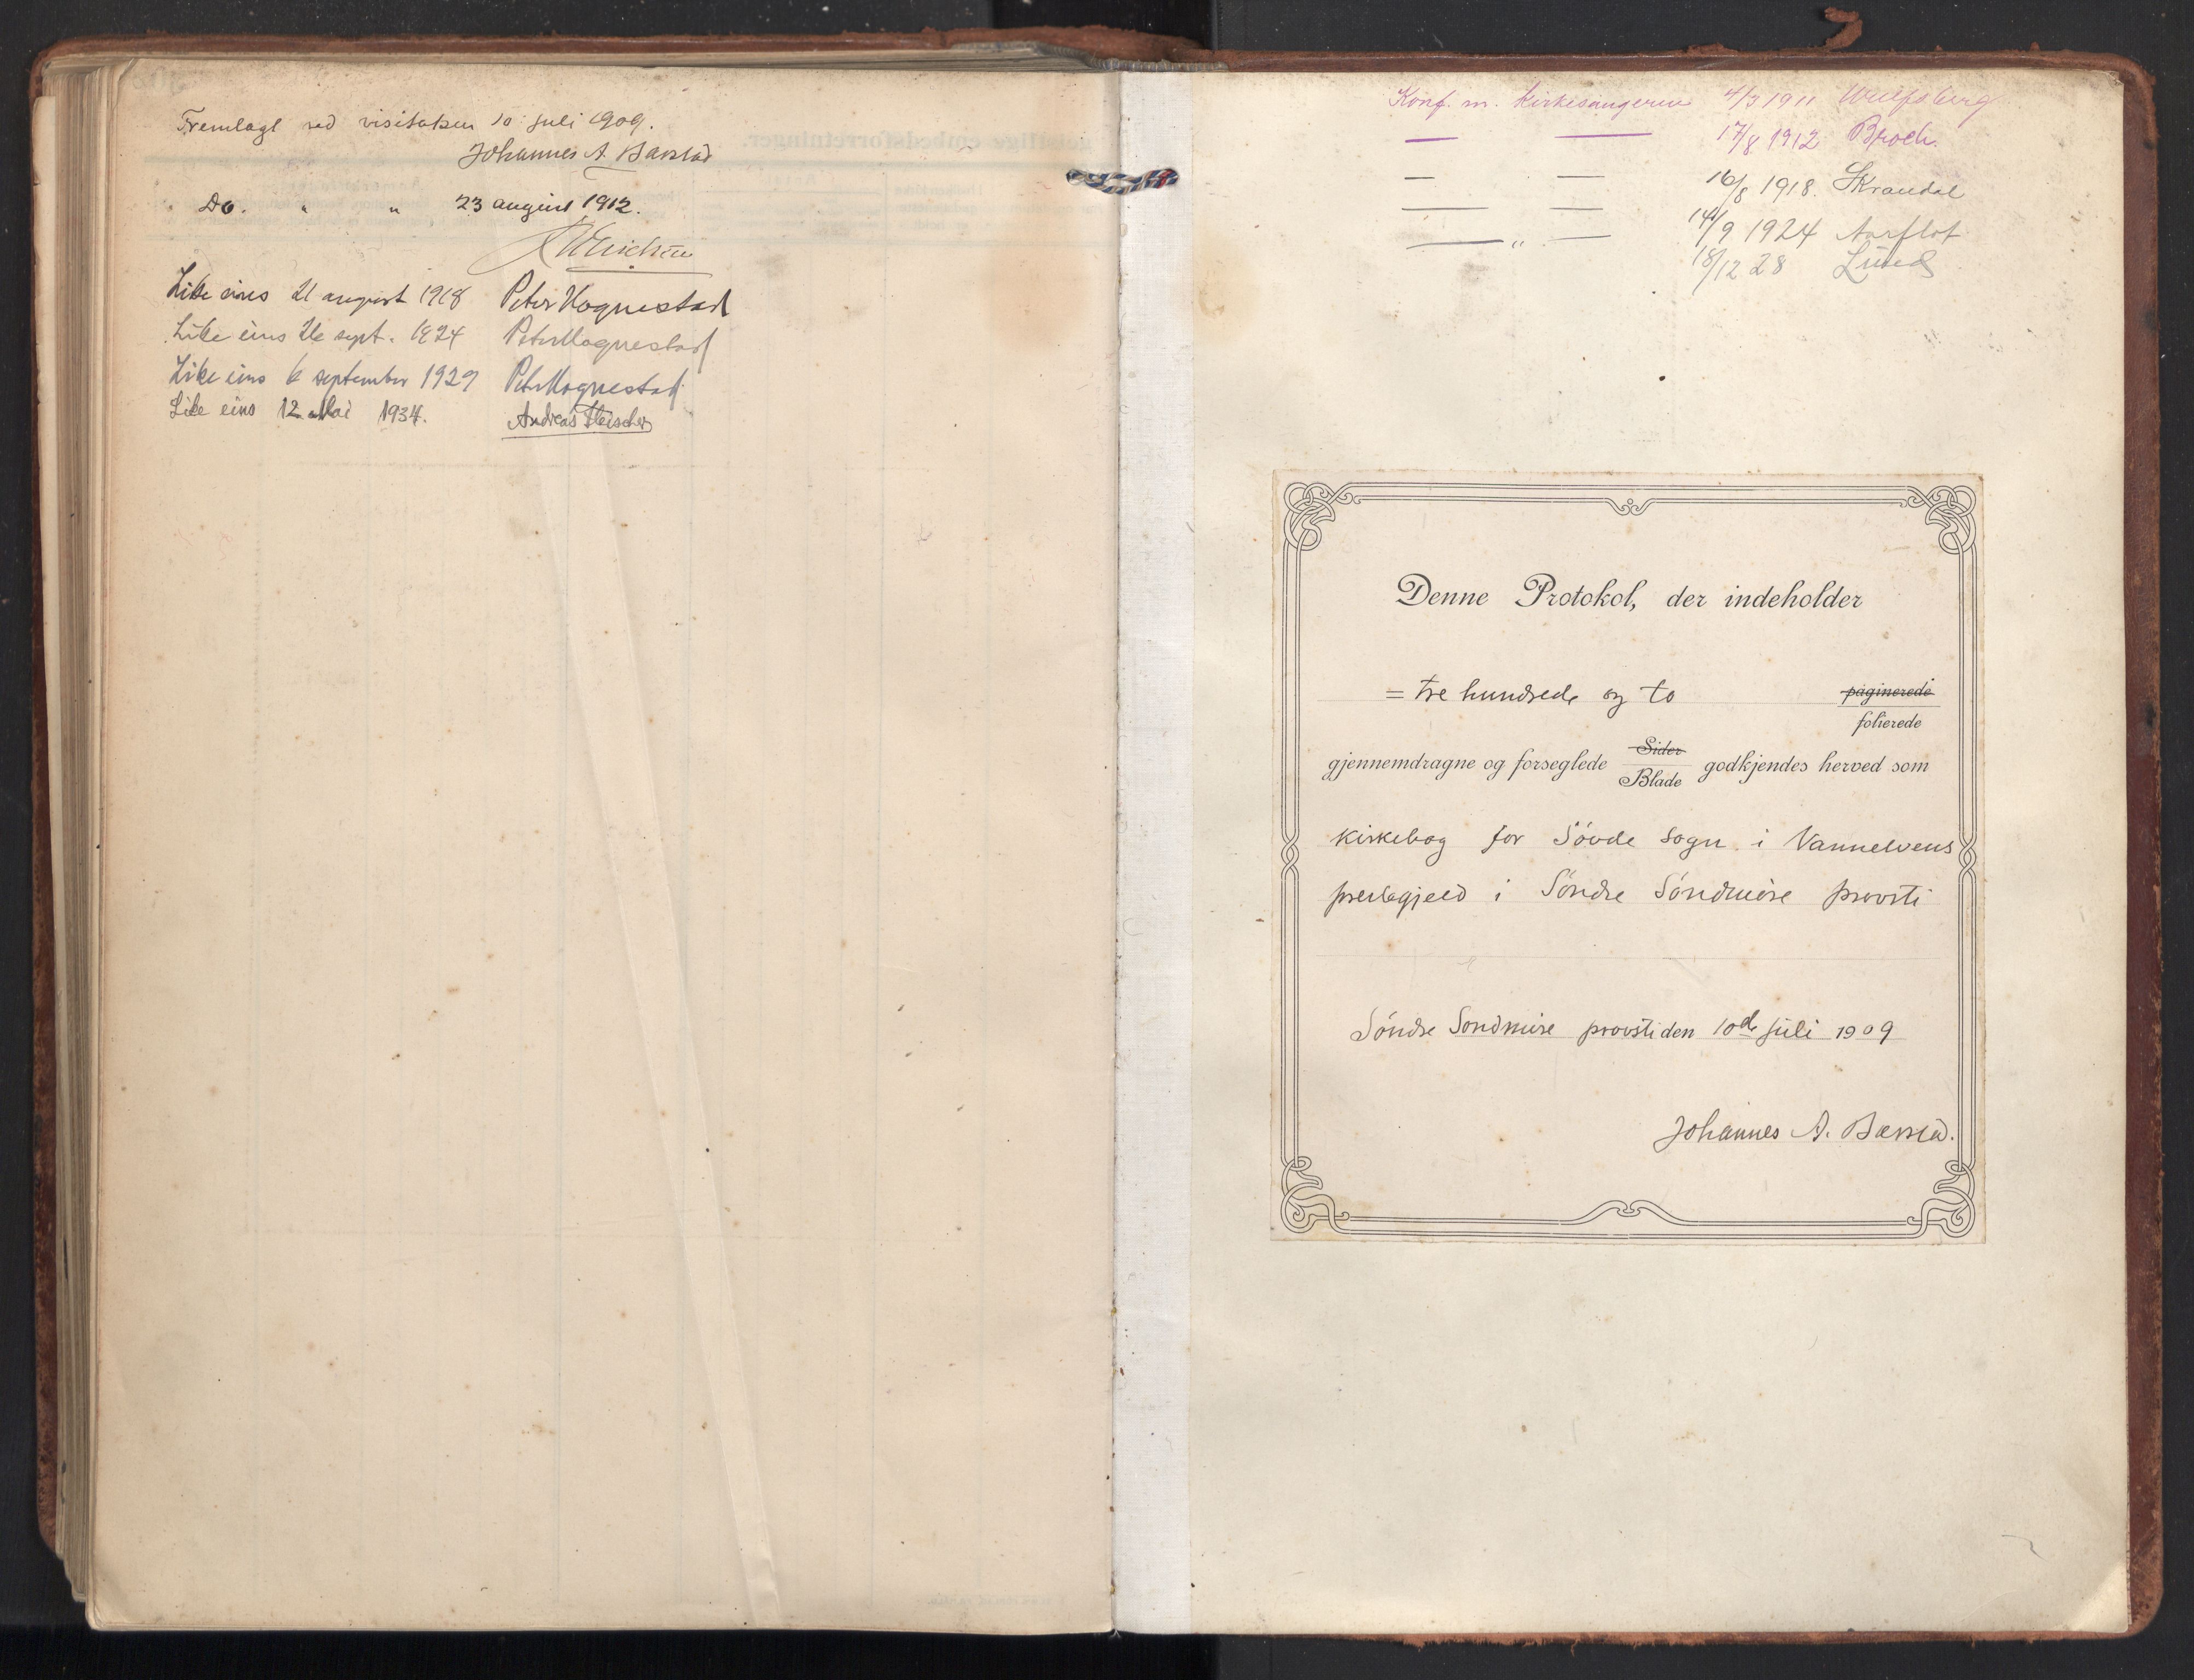 Fremlagt ved visitatsen 10 juli 1909.
Johannes A. Barstad
Do. " " 23 august 1912.
Like eins 21 august 1918 Peter Hognestad
Like eins 26 sept. 1924 Peter Hognestad
Like eins 6 september 1929 Peter Hognestad
Like eins 12 Mai 1934. Andreas Fleischer
Konf. m. kirkesangeren 4/3 1911 Wulfsberg
— — 17/8 1912 Broch.
— — 16/8 1918. Skrandal
— — 14/9 1924 Aarflot
— " — 18/12 28 Lund
Denne Protokol, der indeholder
= tre hundrede og to paginerede
folierede
gjennemdragne og forseglede Sider godkjendes herved som
Blade
kirkebog for Søvde sogn i Vannelvens
prestegjeld i Søndre Søndmøre provsti
Søndre Søndmøre provsti den 10de juli 1909
Johannes A. Barstad.